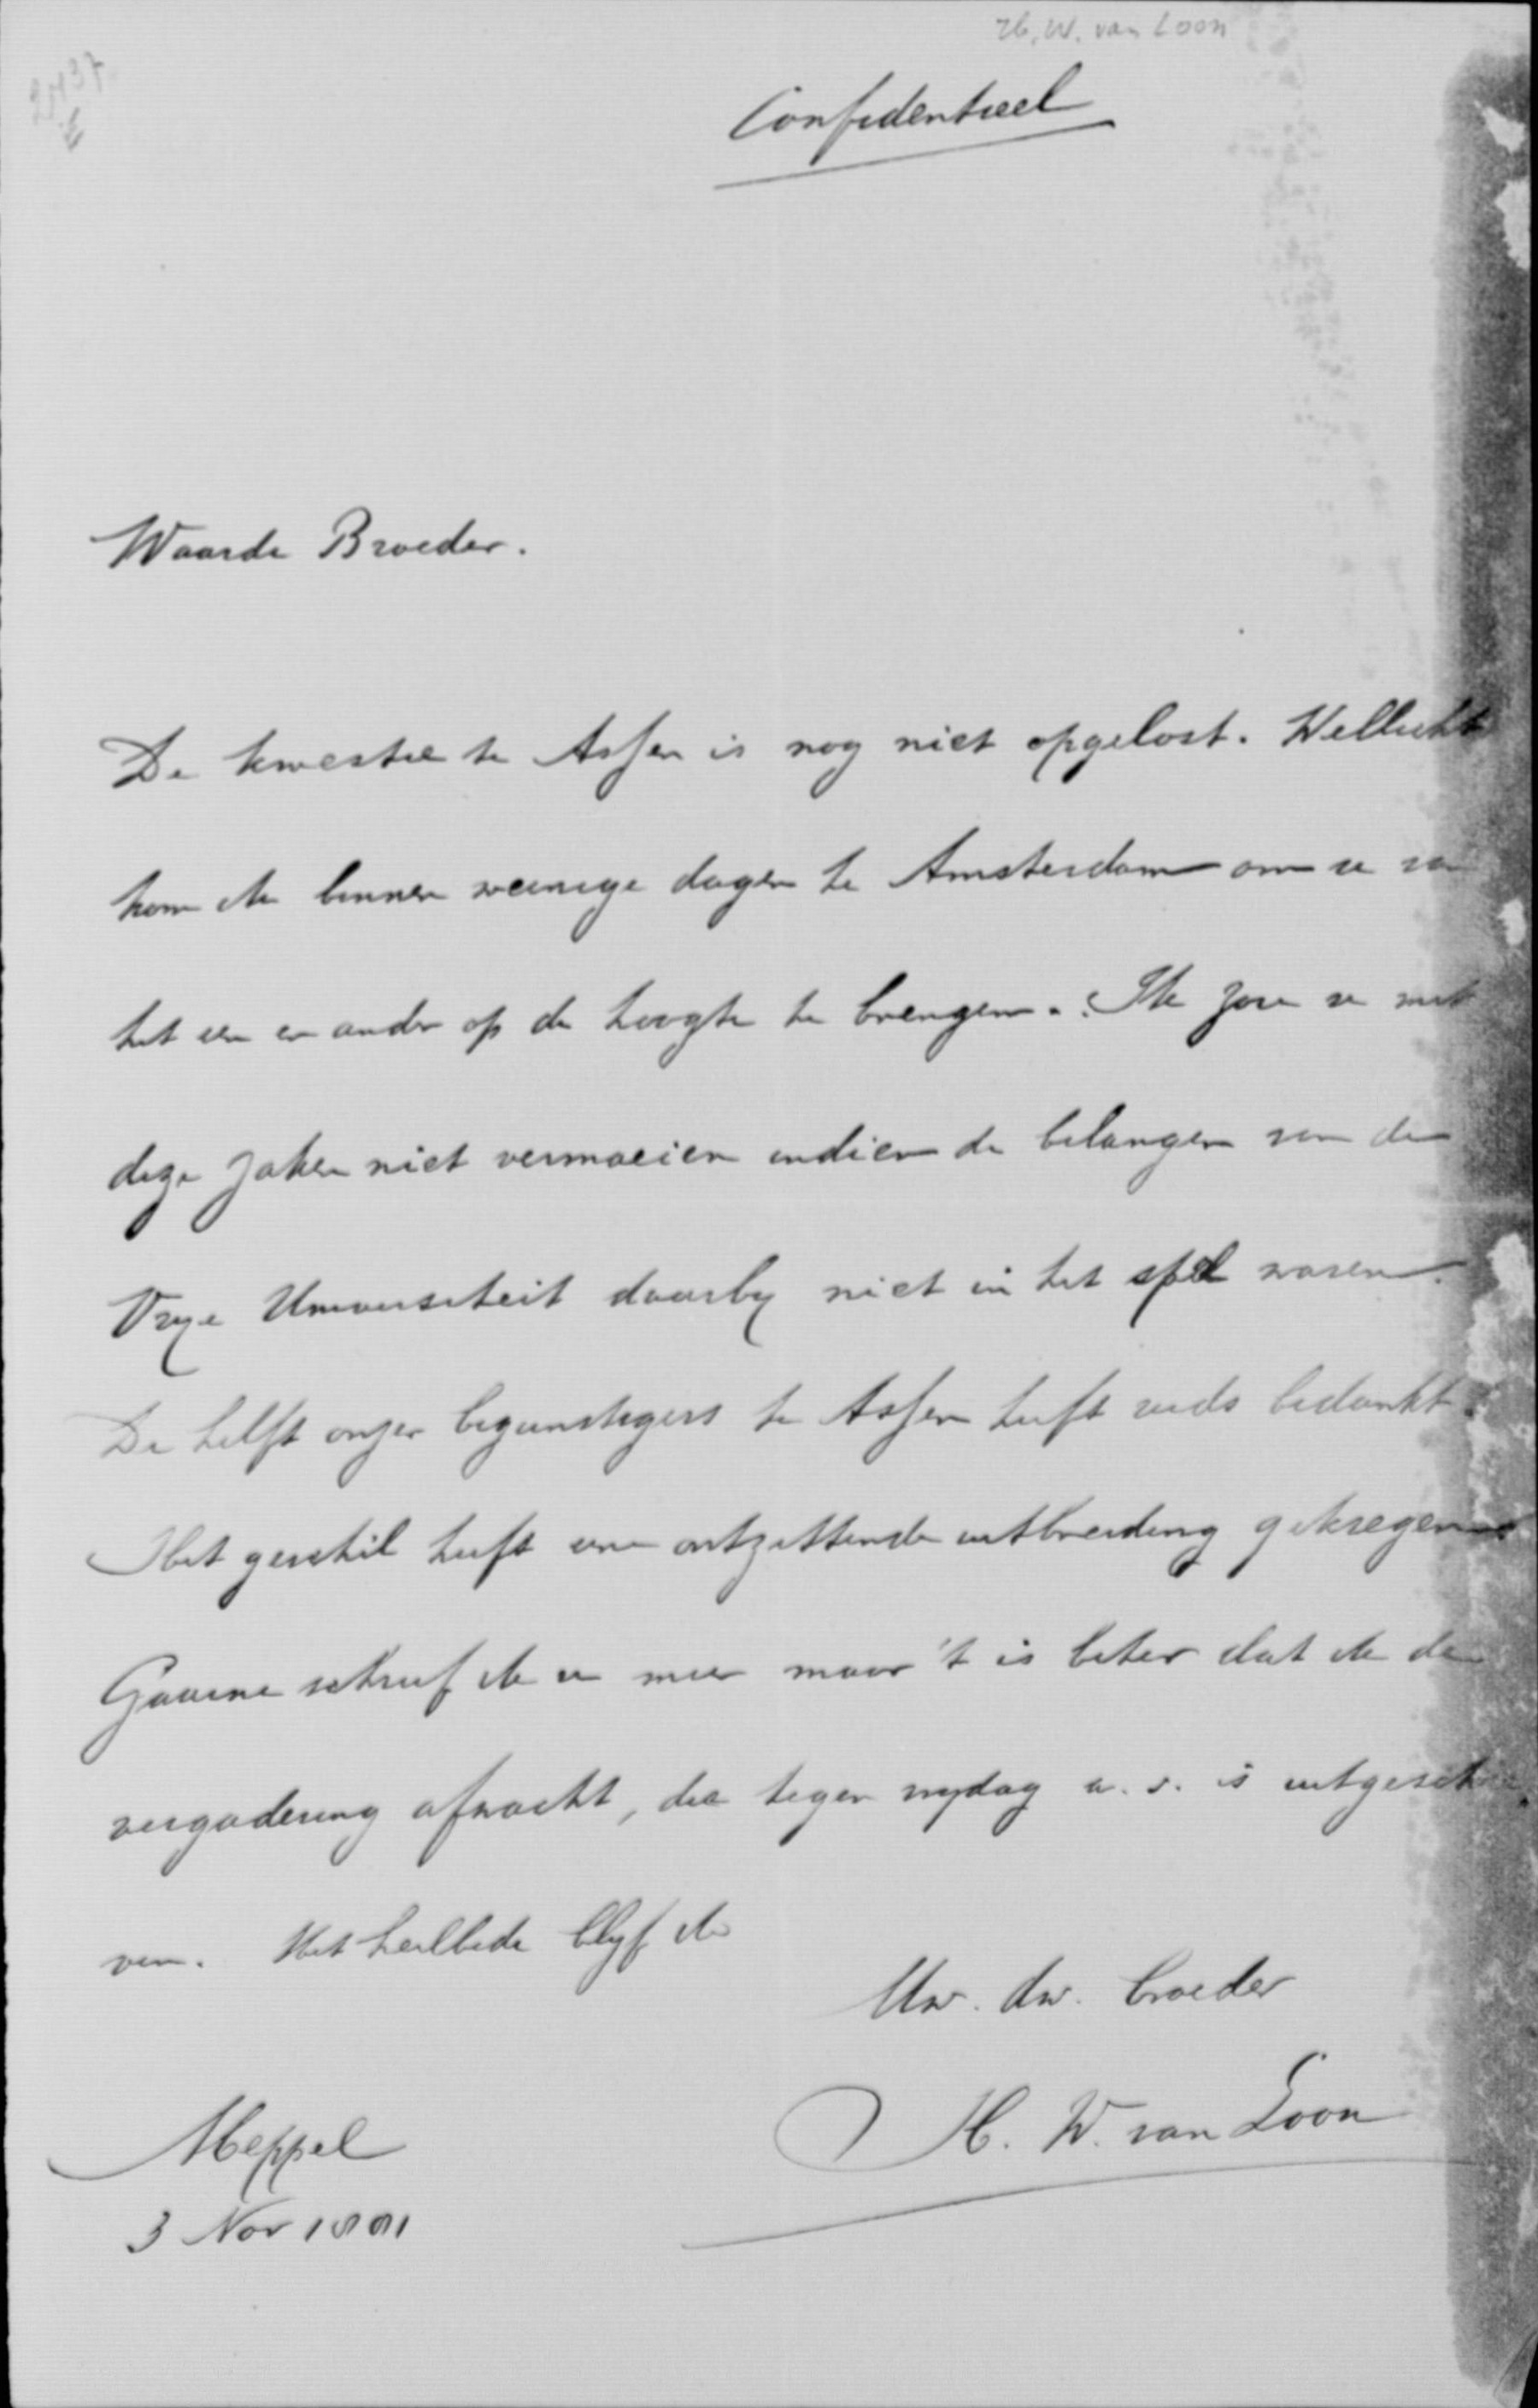 H. W. van Loon
Confidentieel
Waarde Broeder.
De kwestie te Assen is nog niet opgelost. Wellicht
kom ik binnen weinige dagen te Amsterdam om u van
het een en ander op de hoogte te brengen. Ik zou u met
deze zaken niet vermoeien indien de belangen van de
Vrije Universiteit daarbij niet in het spel waren.
De helft onzer begunstigers te Assen heeft reeds bedankt.
Het geschil heeft een ontzettende uitbreiding gekregen
Gaarne schreef ik u meer maar 't is beter dat ik de
vergadering afwacht, die tegen vrijdag a. s. is uitgeschre
ven. Met heilbede blijf ik
Uw. dw. broeder
H. W. van Loon
Meppel
3 Nov